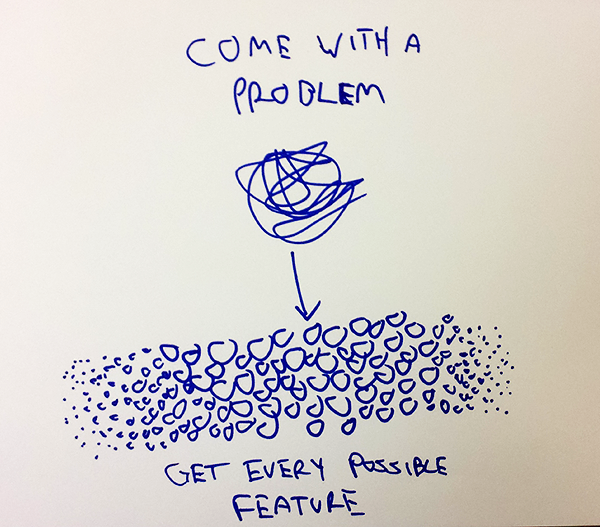 COME WITH A
PROBLEM
GET EVERY POSSIBLE
FEATURE